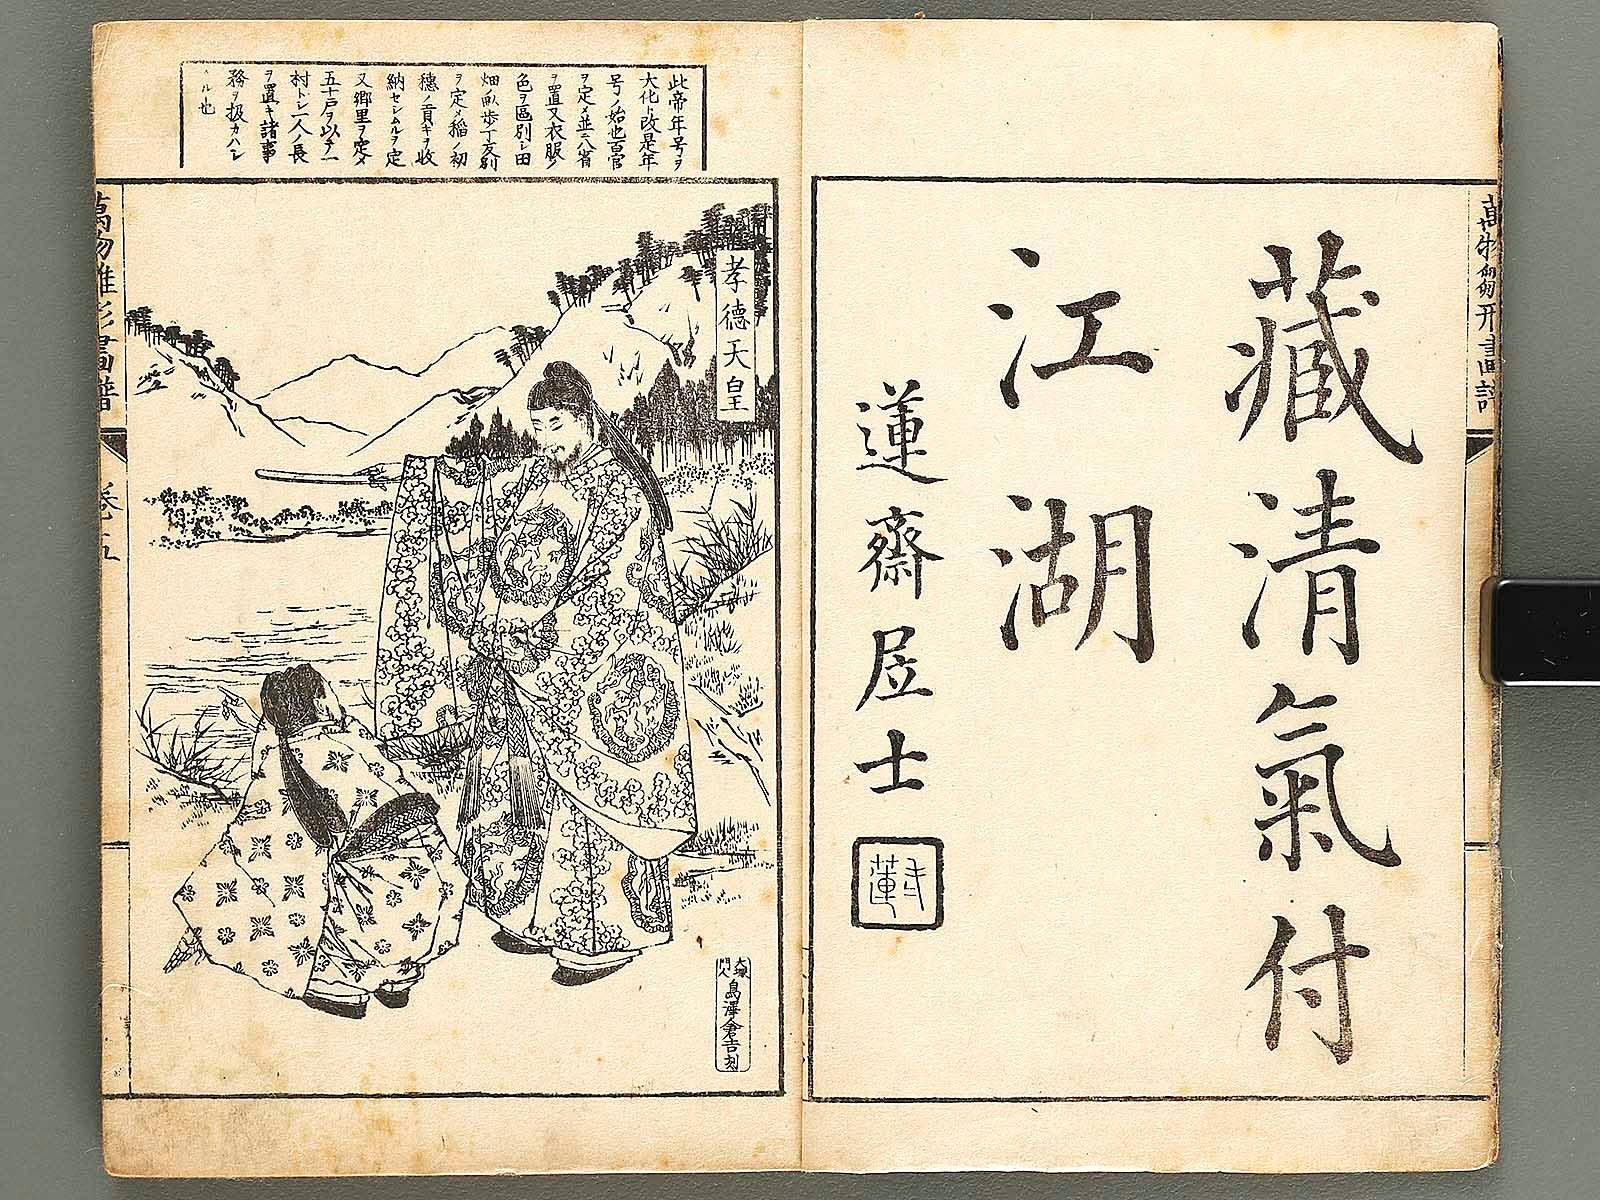 萬物雛形畫譜
藏清氣付
江湖
蓮齋居士
此帝年号ヲ
大化ト改是年
号ノ始也百官
ヲ定メ並ニ八省
ヲ置又衣服ノ
色ヲ區別シ田
畑畝歩丁反別
ヲ定メ稲ノ初
穂ノ貢ギヲ收
納セシムルヲ定
又郷里ヲ定メ
五十戸ヲ以テ一
村トシ一人ノ長
ヲ置キ諸事
務ヲ扱カハシ
ル也
孝德天皇
門人
島澤倉吉刻
萬物雛形畫譜
卷五